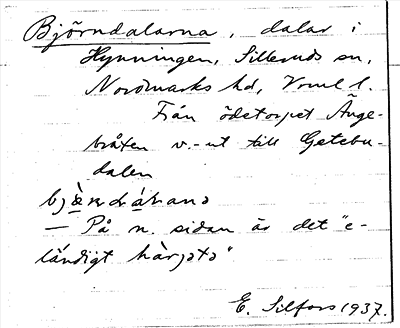 Björndalarna, dalar i
Hynningen, Silleruds sn,
Nordmarks hd, Vrml l.
Från ödetorpet Änge-
bråten v.-ut till Getebu-
dalen
— På n. sidan är det "e-
ländigt härjətə"
E. Silfors 1937.